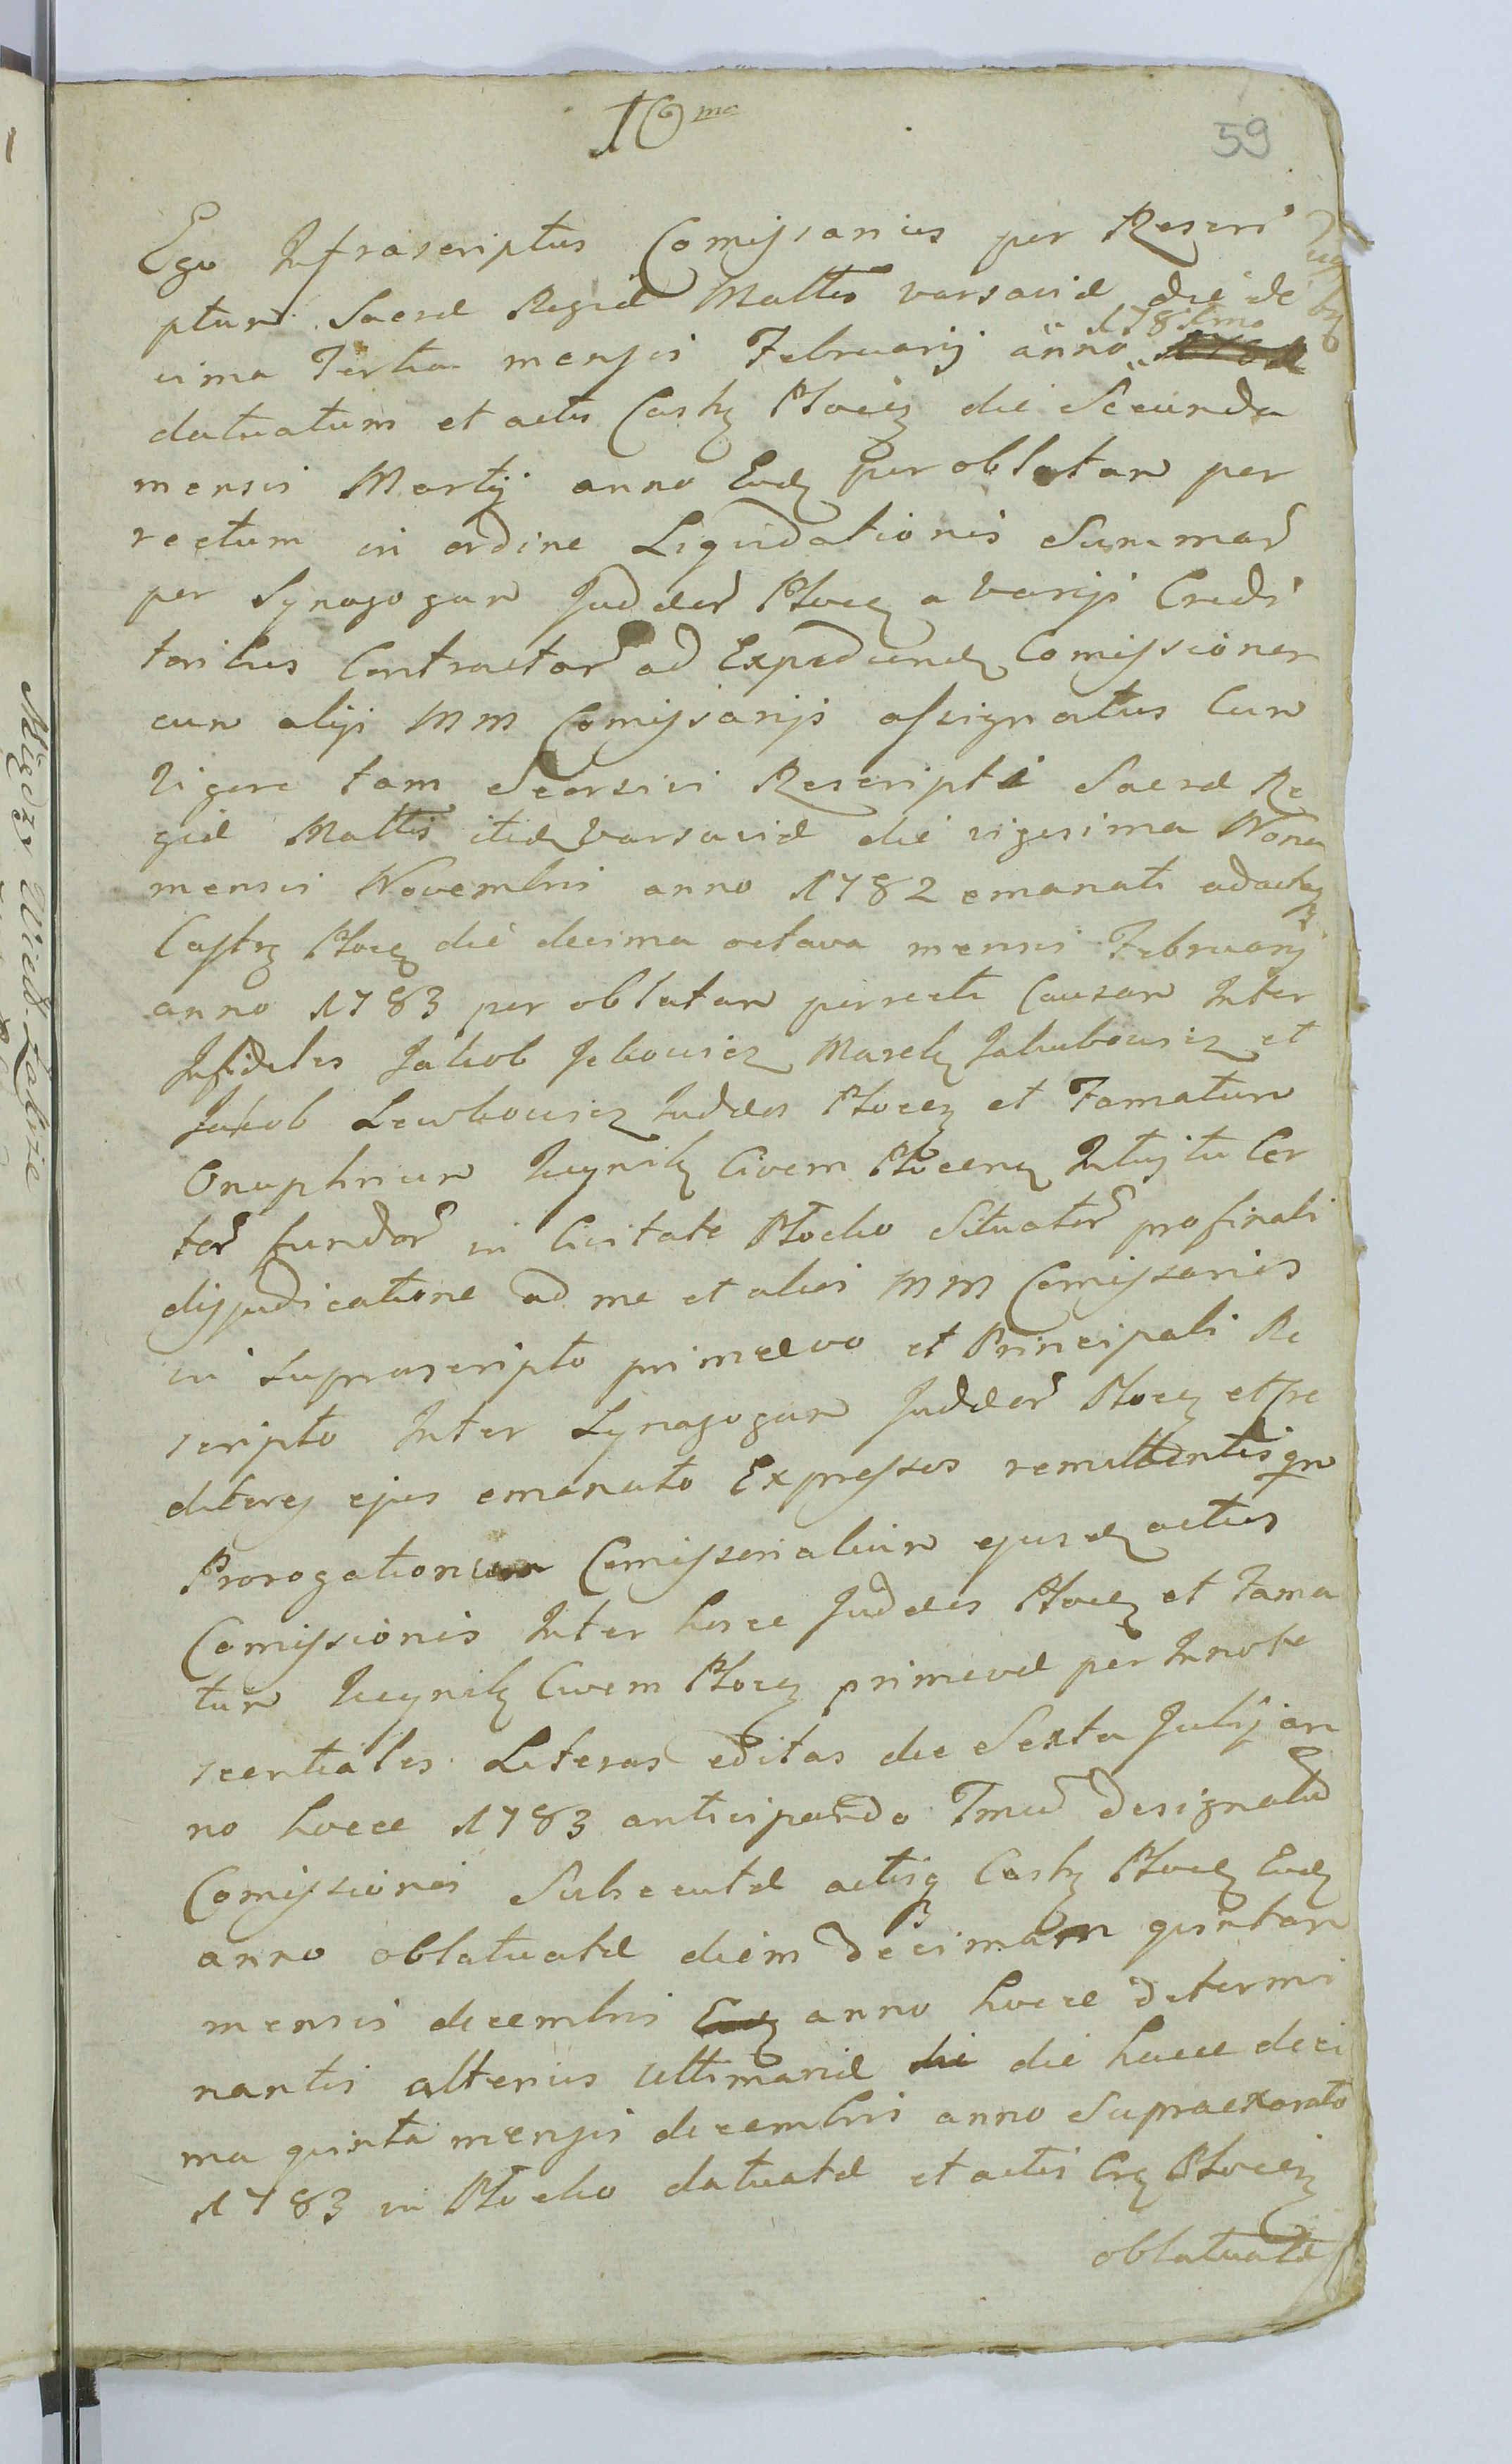 10mo
59
Ego Infrascriptus Comissarius per Rescri
ptum Sacræ Regiæ Mattis Varsaviæ die de
cima Tertia mensis Februarij anno 1781mo
datuatum et actis Castr Plocen die Secunda
mensis Martij anno Eod per oblatam por
rectum in ordine Liquidationis Summar
per Synagogam Judæor Plocen a varijs Credi
toribus Contractar ad Expediend Comissionem
cum alijs MM Comissarijs assignatus Cum
vigore tam Seorsivi Rescripti Sacræ Re
giæ Mattis itid Varsaviæ die vigesima Nona
mensis Novembris anno 1782 emanati ad acta
Castr Plocen die decima octava mensis Februarij
anno 1783 per oblatam porrecti Causam Inter
Infideles Jakob Marek Jakubowicz et
Jakob Lewkowicz Judæos Plocen et Famatum
Onuphrium Civem Plocens Intuitu Cer
tor fundor in Civitate Plocko Situator pro finali
dijudicatione ad me et alios MM Comissarios
in suprascripto primævo et Principali Re
scripto Inter Synagogam Judæor Plocen et Cre
ditores ejus emanato Expressos remittentis qm
Prorogationum Comissorialium ejusd actus
Comissionis Inter hosce Judæos Plocen et Fama
tum Civem Plocen primævæ per Innote
scentiales Literas editas die Sexta Julij an
no hocce 1783 anticipando Tmum designatæ
Comissionis Subsecutæ actisq Castr Plocen Eod
anno oblatuatæ diem decimam quintam
mensis decembris anno hocce determi
nantis alterius ultimariæ die hacce deci
ma quinta mensis decembris anno Supraexarato
1783 in Plocko datuatæ et actis Crg Plocen
oblatuatæ